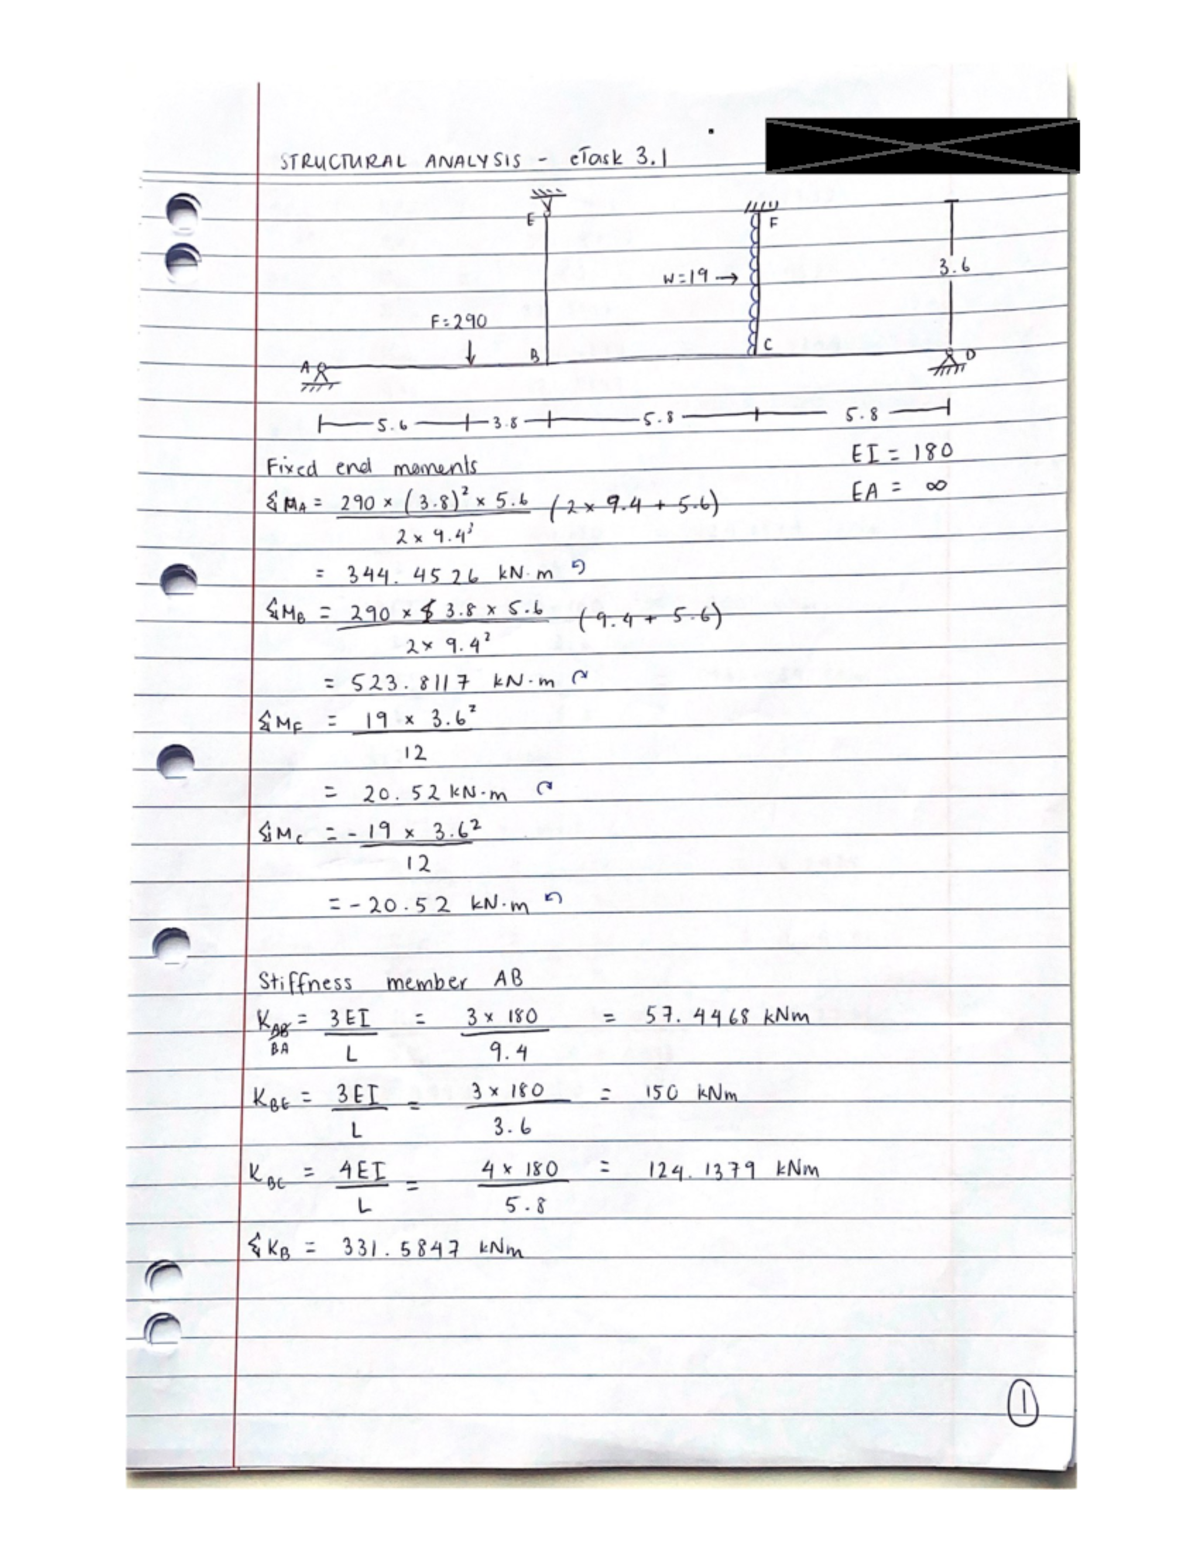 STRUCTURAL ANALYSIS - eTask 3.1
E
F
W=19 →
3.6
F=290
A
B
C
D
5.6
3.8
5.8
5.8
Fixed end moments
EI = 180
ΣMA = 290 × (3.8)² × 5.6 / 2 × 9.4³ (2 × 9.4 + 5.6)
EA = ∞
= 344.4526 kN·m ↺
ΣMB = 290 × 3.8 × 5.6 / 2 × 9.4² (9.4 + 5.6)
= 523.8117 kN·m ↻
ΣMF = 19 × 3.6² / 12
= 20.52 kN·m ↻
ΣMC = - 19 × 3.6² / 12
= - 20.52 kN·m ↺
Stiffness member AB
KBA = 3EI / L = 3 × 180 / 9.4 = 57.4468 kNm
KBE = 3EI / L = 3 × 180 / 3.6 = 150 kNm
KBC = 4EI / L = 4 × 180 / 5.8 = 124.1379 kNm
ΣKB = 331.5847 kNm
1